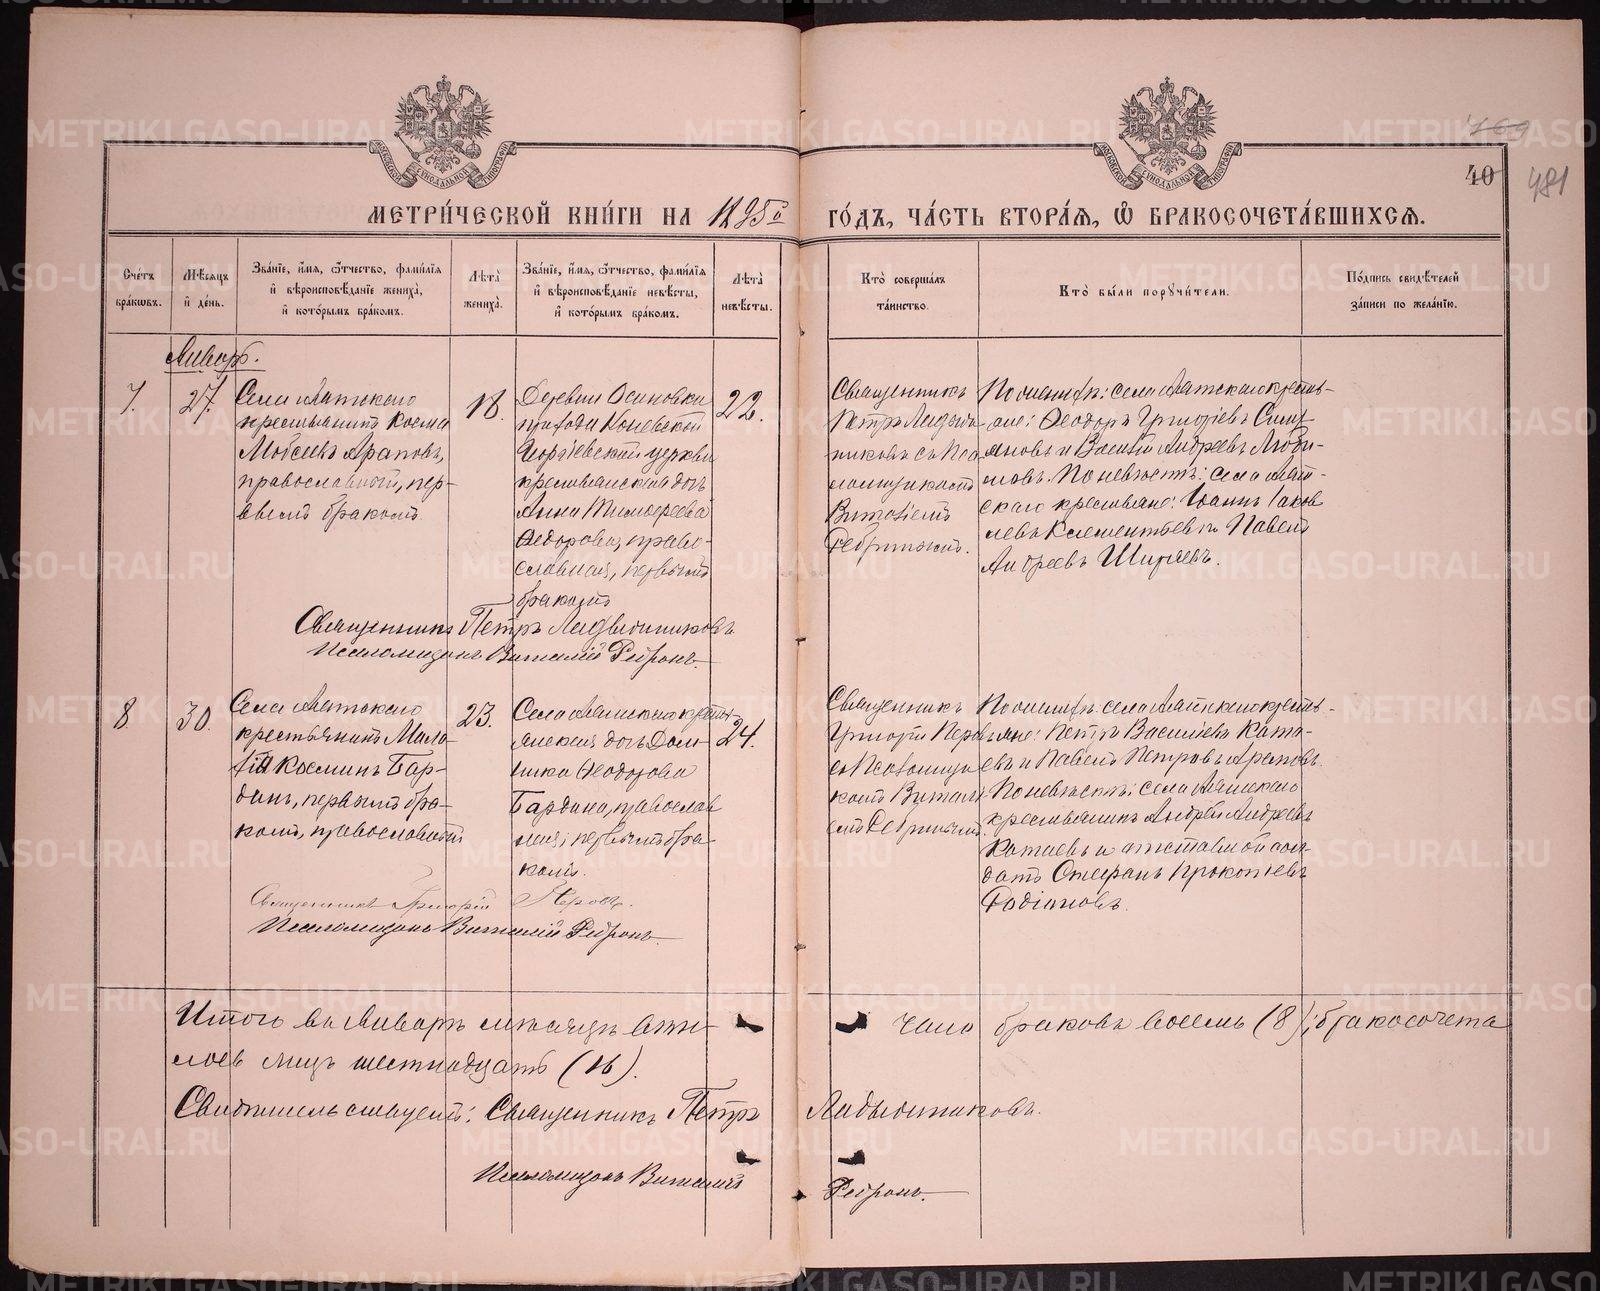 МЕТРИ́ЧЕСКОЙ КНИ́ГИ НА 1895й ГО́ДЪ, ЧА́СТЬ ВТОРА́Я, Ѽ БРАКОСОЧЕТА́ВШИХСЯ.
40
481
Сче́тъ бра́ковъ.
Мѣ́сяцъ и҆ де́нь.
Зва́нїе, и҆́мя, ѻ҆́тчество, фами́лїя и҆ вѣроисповѣ́данїе жениха̀, и҆ кото́рымъ бра́комъ.
Лѣ́та жениха̀.
Зва́нїе, и҆́мя, ѻ҆́тчество, фами́лїя и҆ вѣроисповѣ́данїе невѣ́сты, и҆ кото́рымъ бра́комъ.
Лѣ́та невѣ́сты.
Кто̀ соверша́лъ та́инство.
Кто̀ бы́ли порꙋчи́тели.
По́дпись свидѣ́телей за́писи по жела́нїю.
Январь.
7.
27.
Села Лятскаго
крестьянинъ Косма
Араповъ,
православный, пер-
вымъ бракомъ.
18.
Деревни Осиновки
прихода Коневской
Георгіевской церкви
крестьянская дочь
Анна Тимофеева
Федорова, право-
славная, первымъ
бракомъ
22.
Священникъ
Петръ Ладыж-
никовъ съ Пса-
ломщикомъ
Виталіемъ
По женихѣ: села Лятскаго кресть-
яне: Ѳеодоръ Григоріевъ
и Василій Андреевъ
По невѣстѣ: села
скаго крестьяне: Іоаннъ Іаков-
левъ Клементьевъ и Павелъ
Андреевъ Ширяевъ.
Священникъ Петръ Ладыжниковъ
Псаломщикъ Виталій
8
30.
Села Лятскаго
крестьянинъ
Косминъ Бар-
динъ, первымъ бра-
комъ, православный
23.
Села Лятскаго
дочь Дом-
ника Ѳеодорова
Бардина, православ
ная, первымъ бра-
комъ.
24.
Священникъ
Григорій Перовъ
съ Псаломщи-
комъ Витал
По женихѣ: села Лятскаго кресть-
яне: Петръ Василіевъ Ката-
евъ и Павелъ Петровъ Араповъ.
По невѣстѣ: села Лятскаго
крестьянинъ Андрей Андреевъ
Катаевъ и отставной сол-
датъ Стефанъ Прокопіевъ
Родіоновъ.
Священникъ Григорій Перовъ.
Псаломщикъ Виталій
Итого въ Январѣ мѣсяцѣ число браковъ восемь (8); бракосочета
лицъ шестнадцать (16).
Свидѣтельствуемъ: Священникъ Петръ Ладыжниковъ.
Псаломщикъ Виталій
METRIKI.GASO-URAL.RU